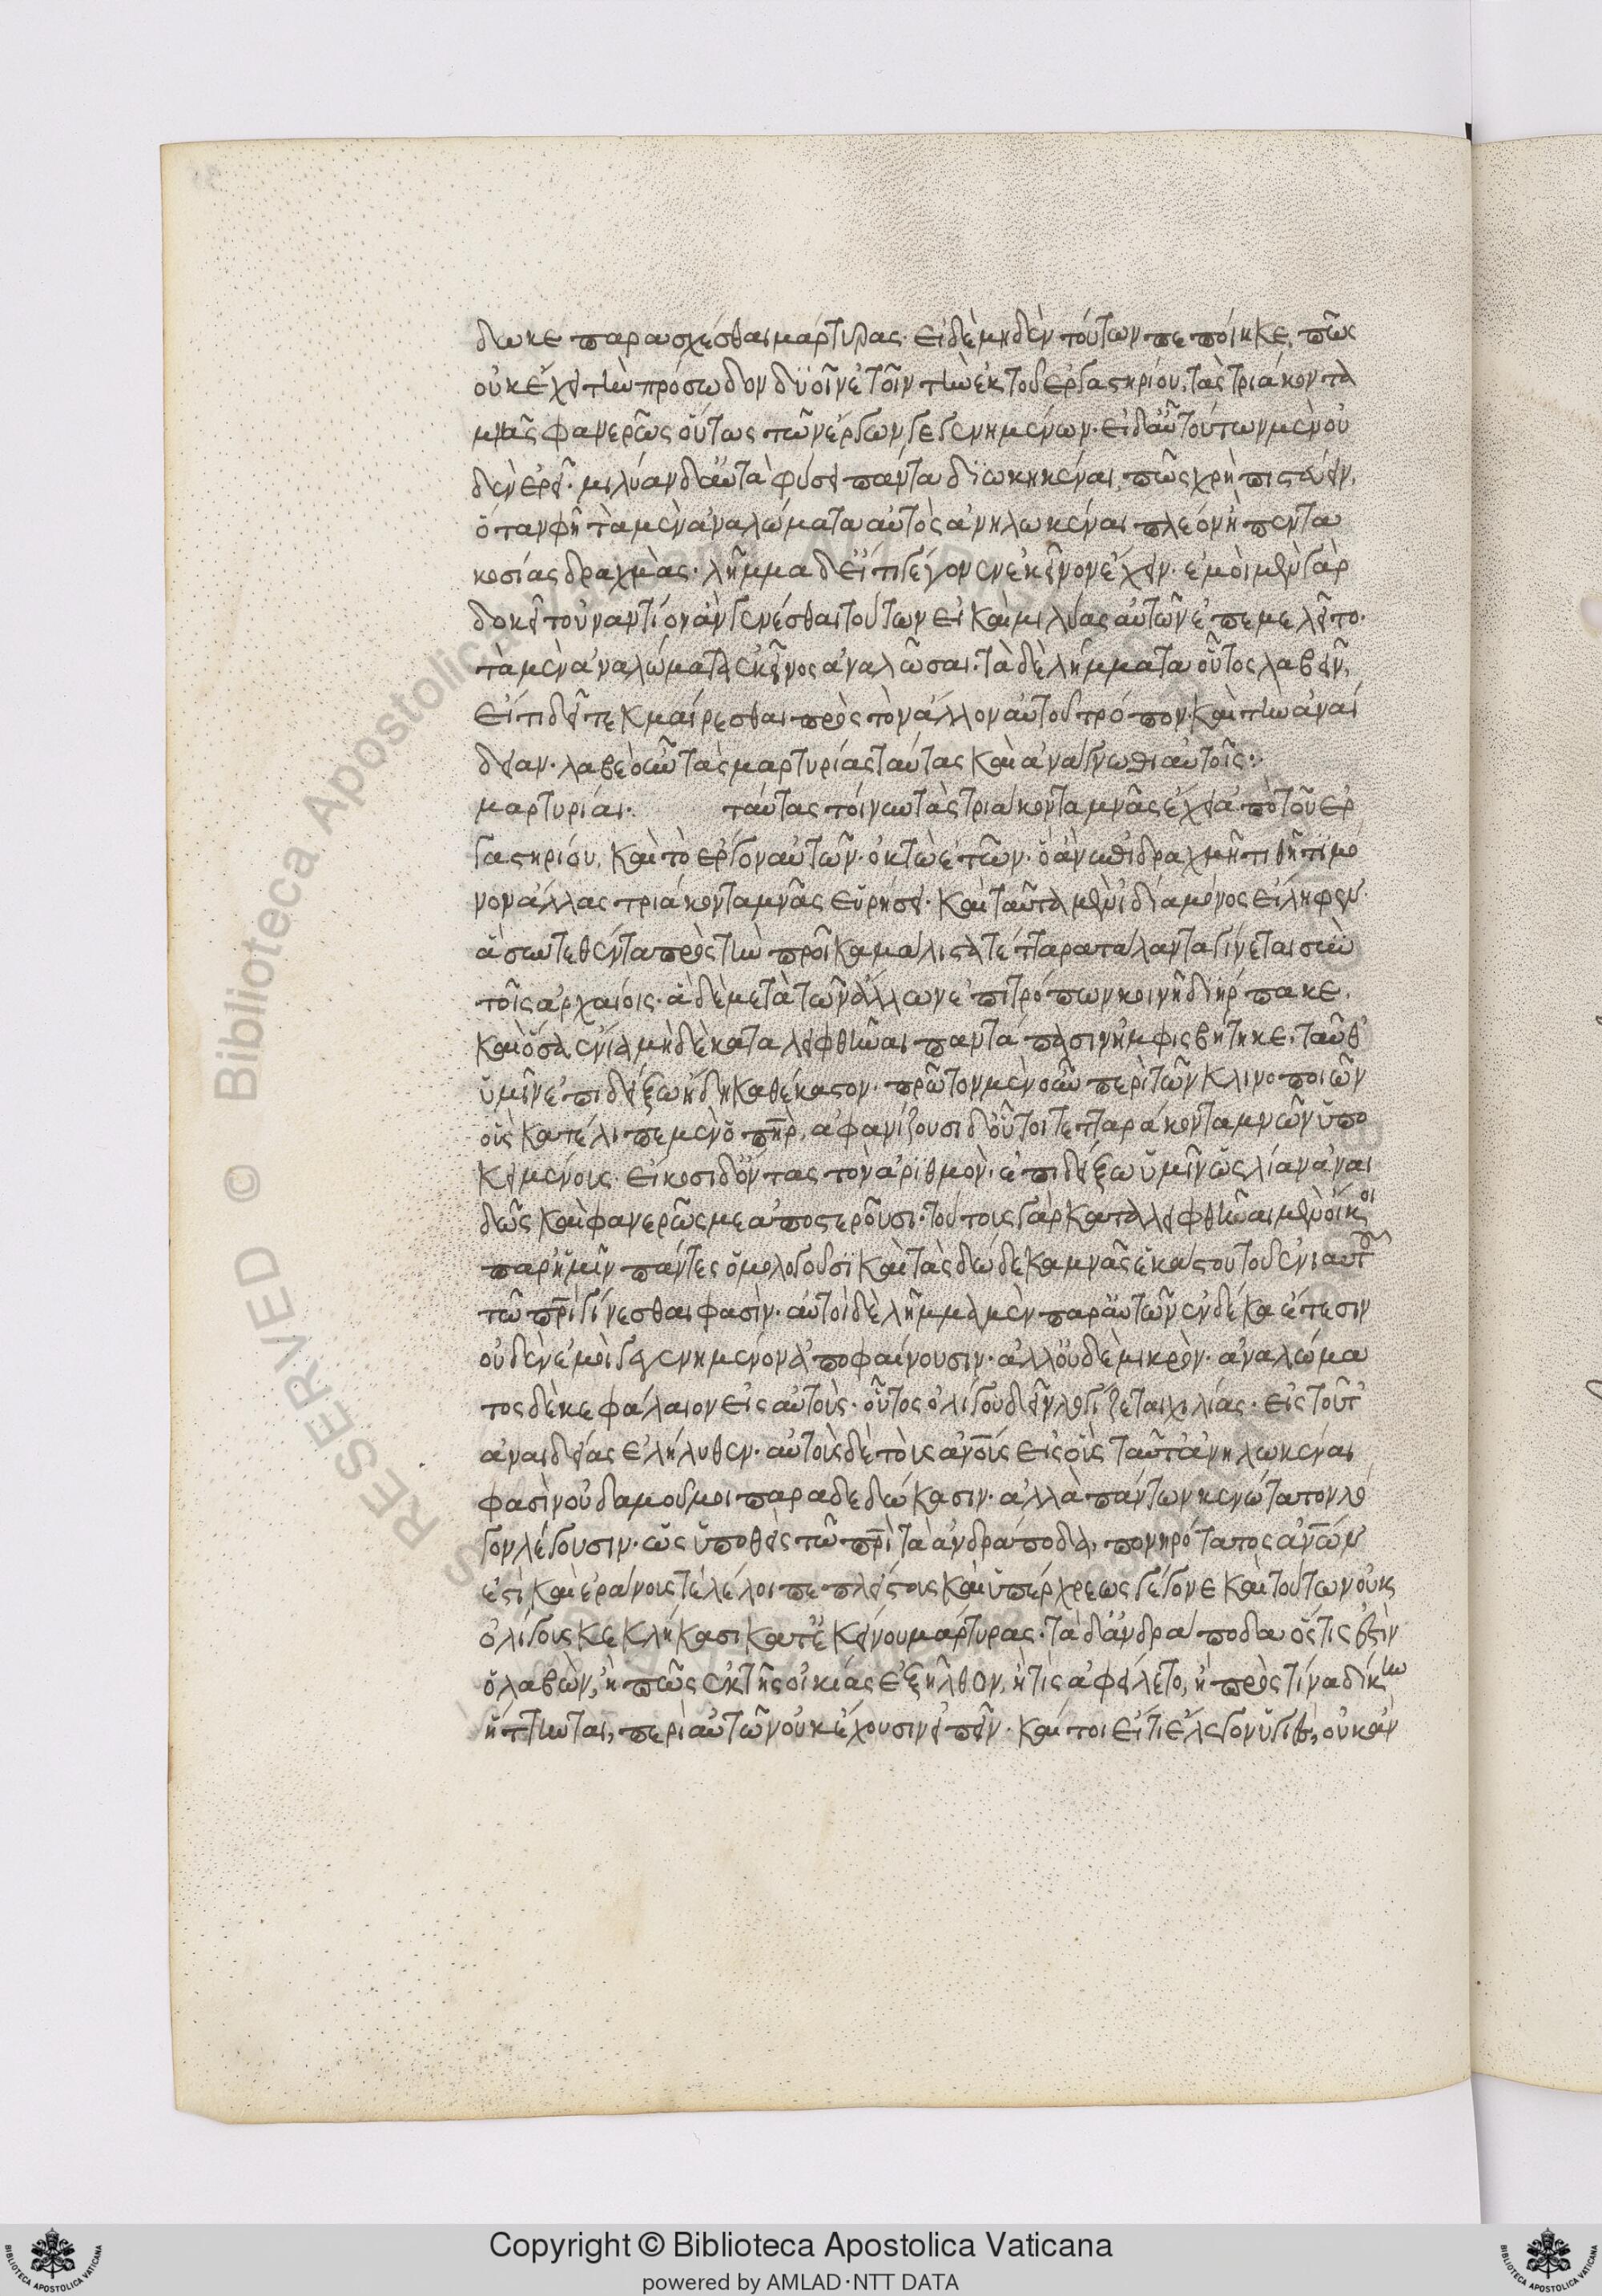 δωκε παρασχέσθαι μάρτυρας· εἰ δὲ μηδὲν τούτων πεποίηκε, πῶς
οὐκ ἔχει τὴν πρόσωδον δυοῖν ἐτοῖν τὴν ἐκ τοῦ ἐργαστηρίου, τὰς τριάκοντα
μνᾶς φανερῶς οὕτως τῶν ἔργων γεγενημένων· εἰ δ' αὖ τούτων μὲν οὐ
δὲν ἐρεῖ· μιλύαν δ' αὐτὰ φήσει πάντα διωκηκέναι, πῶς χρὴ πιστεύειν,
ὅταν φῆ τὰ μὲν ἀναλώματα αὐτὸς ἀνηλωκέναι πλέον ἢ πεντα
κοσίας δραχμὰς· λῆμμα δ' εἴ τι γέγονεν ἐκεῖνον ἔχειν· ἐμοὶ μὲν γὰρ
δοκεῖ τοὐναντίον ἂν γενέσθαι τούτων εἰ καὶ μιλύας αὐτῶν ἐπεμελεῖτο·
τὰ μὲν ἀναλώματα ἐκεῖνος ἀναλῶσαι· τὰ δὲ λήμματα οὗτος λαβεῖν,
εἴ τι δεῖ τεκμαίρεσθαι πρὸς τὸν ἄλλον αὐτοῦ τρόπον· καὶ τὴν ἀναί
δειαν· λαβὲ οὖν τὰς μαρτυρίας ταύτας καὶ ἀνάγνωθι αὐτοῖς:
μαρτυρίαι. ταύτας τοίνυν τὰς τριάκοντα μνᾶς ἔχει ἀπὸ τοῦ ἐρ
γαστηρίου, καὶ τὸ ἔργον αὐτῶν· ὀκτὼ ἐτῶν· ὃ ἂν ἐπὶ δραχμῇ τιθῇ τι μό
νον ἄλλας τριάκοντα μνᾶς εὑρήσει· καὶ ταῦτα μὲν ἰδία μόνος εἴληφεν·
ἃ συντεθέντα πρὸς τὴν προῖκα μάλιστα τέτταρα τάλαντα γίνεται σὺν
τοῖς ἀρχαίοις· ἃ δὲ μετὰ τῶν ἄλλων ἐπιτρόπων κοινῇ διήρπακε,
καὶ ὅσα ἔνια μὴ δὲ καταλειφθῆναι παντάπασιν ἠμφισβήτηκε, ταῦθ'
ὑμῖν ἐπιδείξω ἤδη καθέκαστον· πρῶτον μὲν οὖν περὶ τῶν κλινοποιῶν
οὓς κατέλιπε μὲν ὁ πηρ, ἀφανίζουσι δ' οὗτοι τετταράκοντα μνῶν ὑπο
κειμένους· εἴκοσι δ' ὄντας τὸν ἀριθμὸν· ἐπιδείξω ὑμῖν ὡς λίαν ἀναι
δῶς καὶ φανερῶς με ἀποστεροῦσι· τούτους γὰρ καταλειφθῆναι μὲν οἴκοι
παρ' ἡμῖν πάντες ὁμολογοῦσι καὶ τὰς δώδεκα μνᾶς ἑκάστου τοῦ ἐνιαυτοῦ
τῷ πρὶ γίνεσθαι φασὶν· αὐτοὶ δὲ λῆμμα μὲν παρ' αὐτῶν ἐν δέκα ἔτεσιν
οὐδὲν ἐμοὶ γεγενημένον ἀποφαίνουσιν· ἀλλ' οὐδὲ μικρὸν· ἀναλώμα
τος δὲ κεφάλαιον εἰς αὐτοὺς· οὗτος ὀλίγου δεῖν λογίζεται χιλίας· εἰς τοῦτ'
ἀναιδείας ἐλήλυθεν· αὐτοὺς δὲ τοὺς ἀνοὺς εἰς οὓς ταῦτ' ἀνηλωκέναι
φασὶν οὐδαμοῦ μοι παραδεδώκασιν· ἀλλὰ πάντων κενώτατον λό
γον λέγουσιν· ὡς ὑποθεὶς τῷ πρὶ τὰ ἀνδράποδα, πονηρότατος ἀνῶν
ἐστὶ καὶ ἐράνους τε λέλοιπε πλείστους καὶ ὑπέρχρεως γέγονε καὶ τούτων οὐκ
ὀλίγους κεκλήκασι κατ' ἐκείνου μάρτυρας· τὰ δ' ἀνδράποδα ὅστις ἐστὶν
ὁ λαβὼν, ἢ πῶς ἐκ τῆς οἰκίας ἐξῆλθον, ἢ τὶς ἀφείλετο, ἢ πρὸς τίνα δίκην
ἥττηνται, περὶ αὐτῶν οὐκ ἔχουσιν εἰπεῖν· καίτοι εἴ τι ἔλεγον ὑγιὲς, οὐκ ἂν